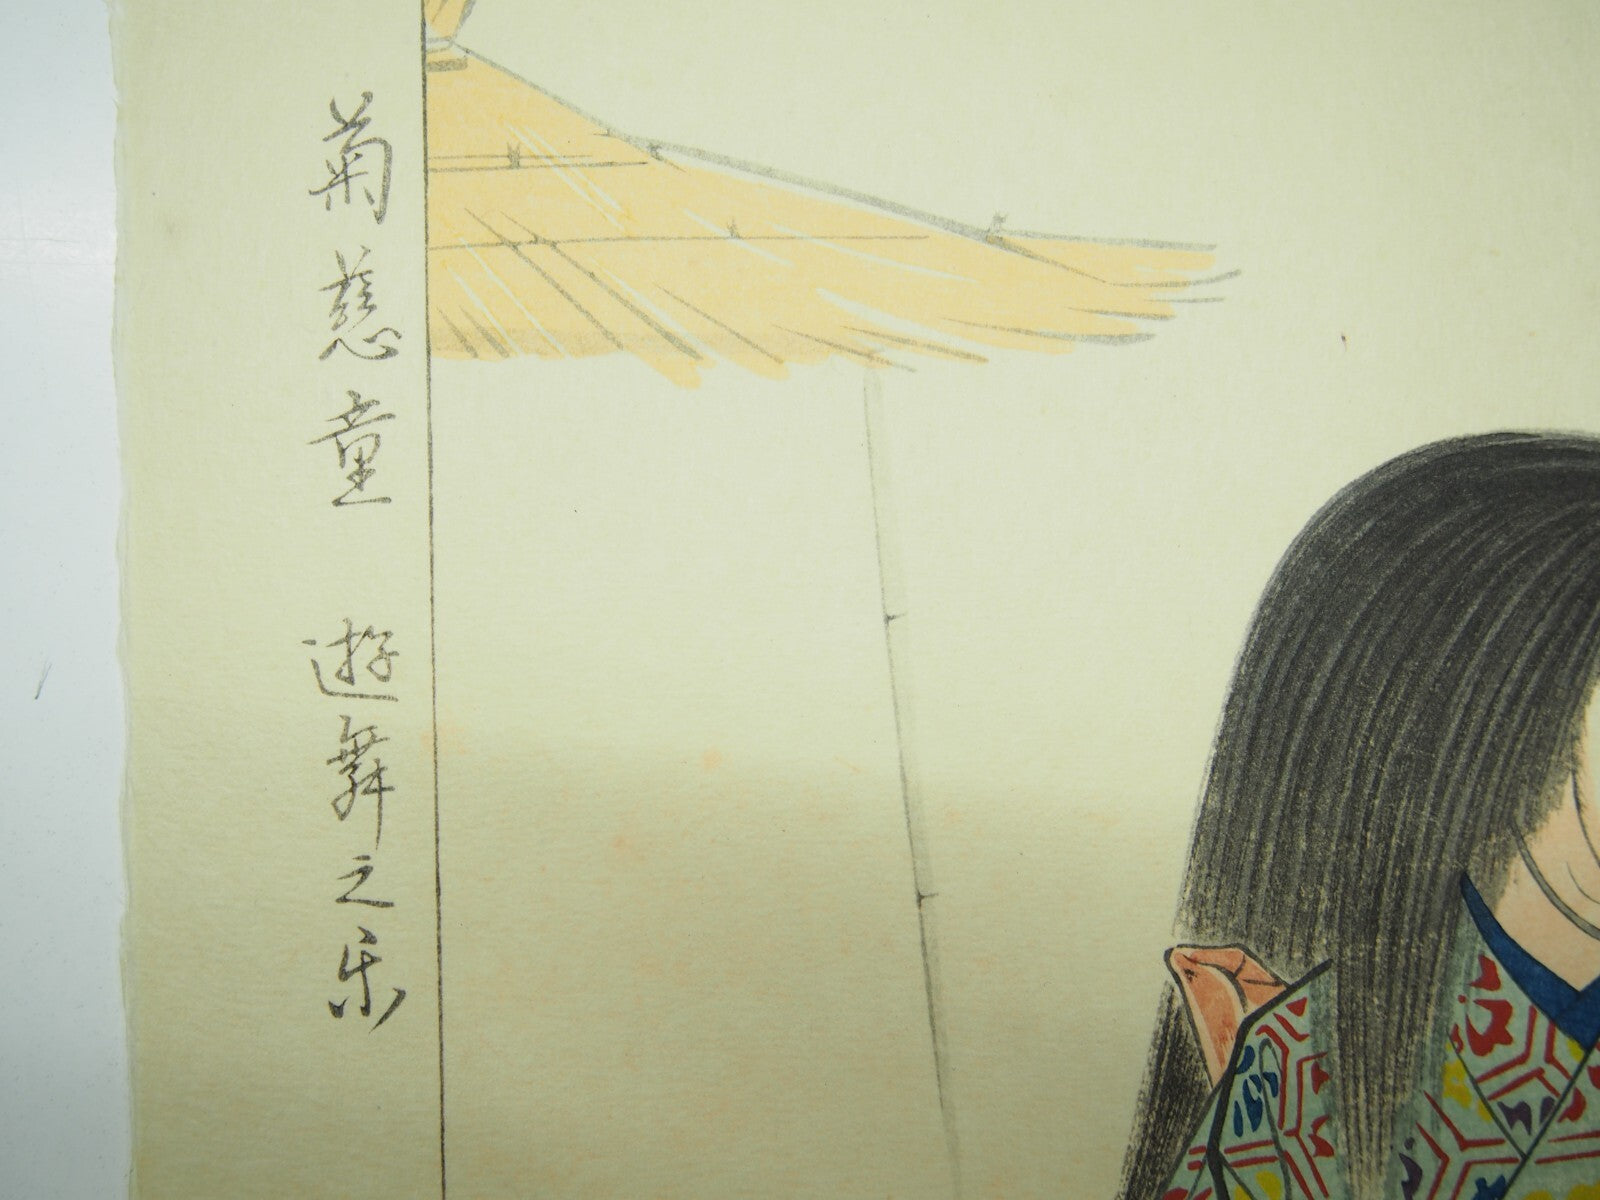 菊慈童 遊舞之楽